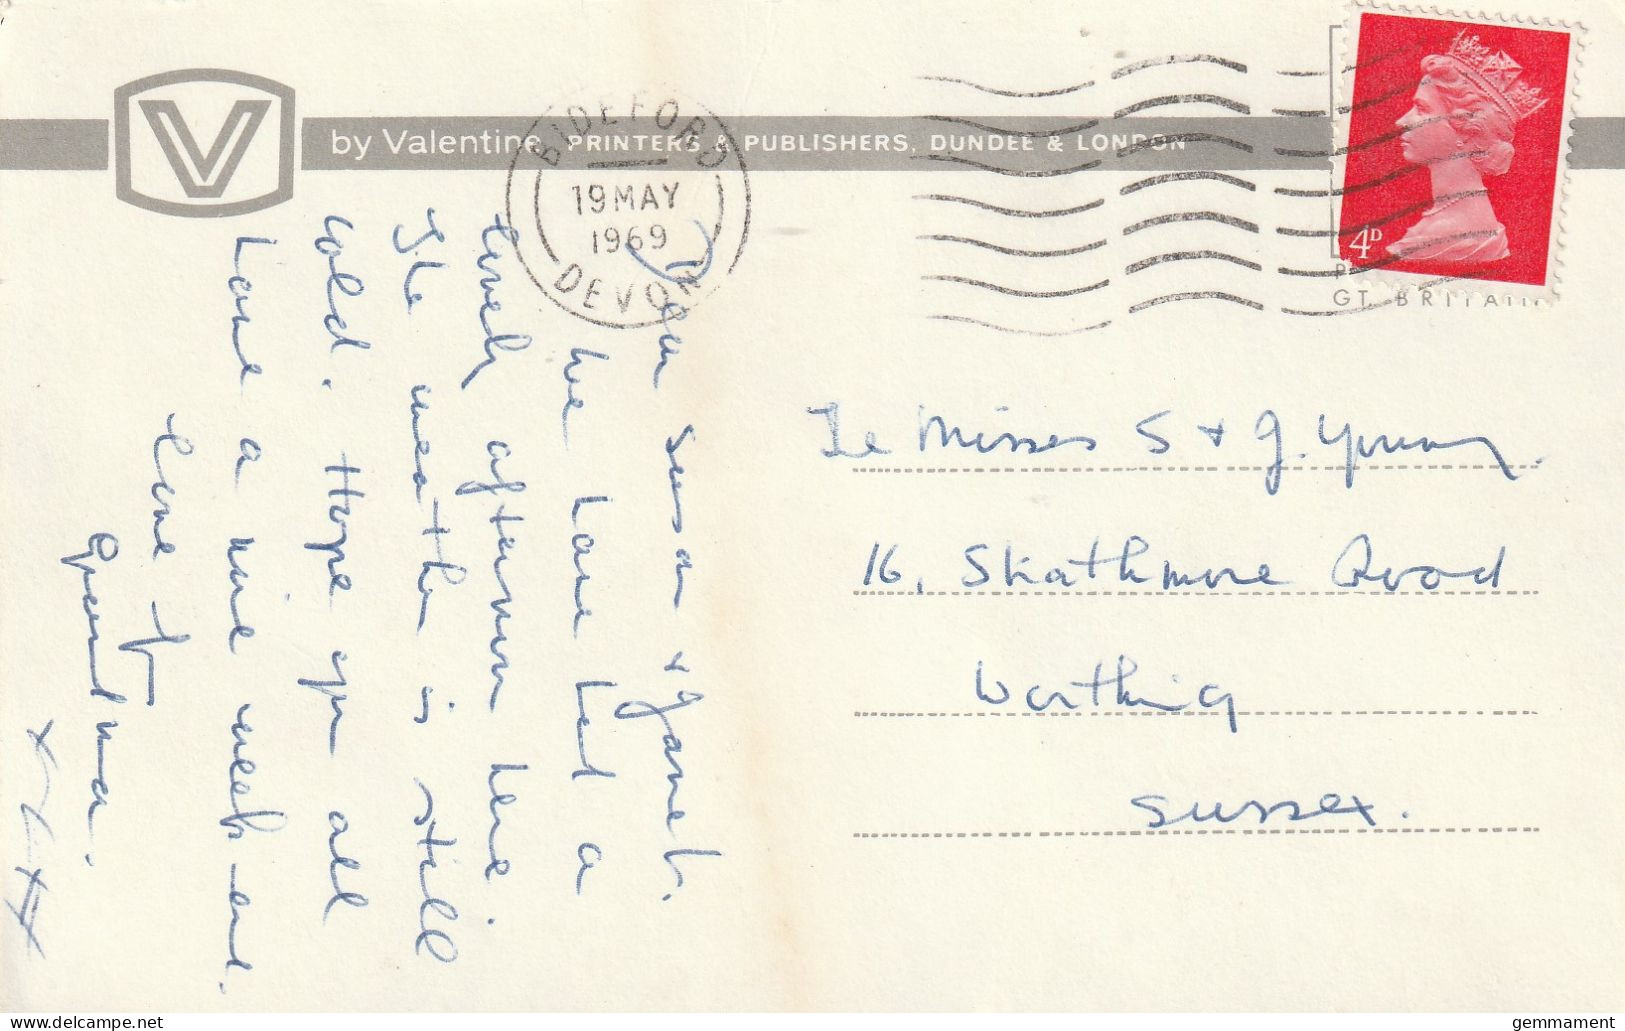 V
by Valentine PRINTERS & PUBLISHERS, DUNDEE & LONDON
BIDEFORD
19 MAY
1969
DEVON
4D
GT. BRITAIN
Dear Susan & Janet.
We have had a
lovely afternoon here.
The weather is still
cold. Hope you all
have a nice week end.
Love from
Grandma.
x x x x x
Misses S & J. Young.
16, Skathmore Road
Worthing
Sussex.
delcampe.net
gemmament